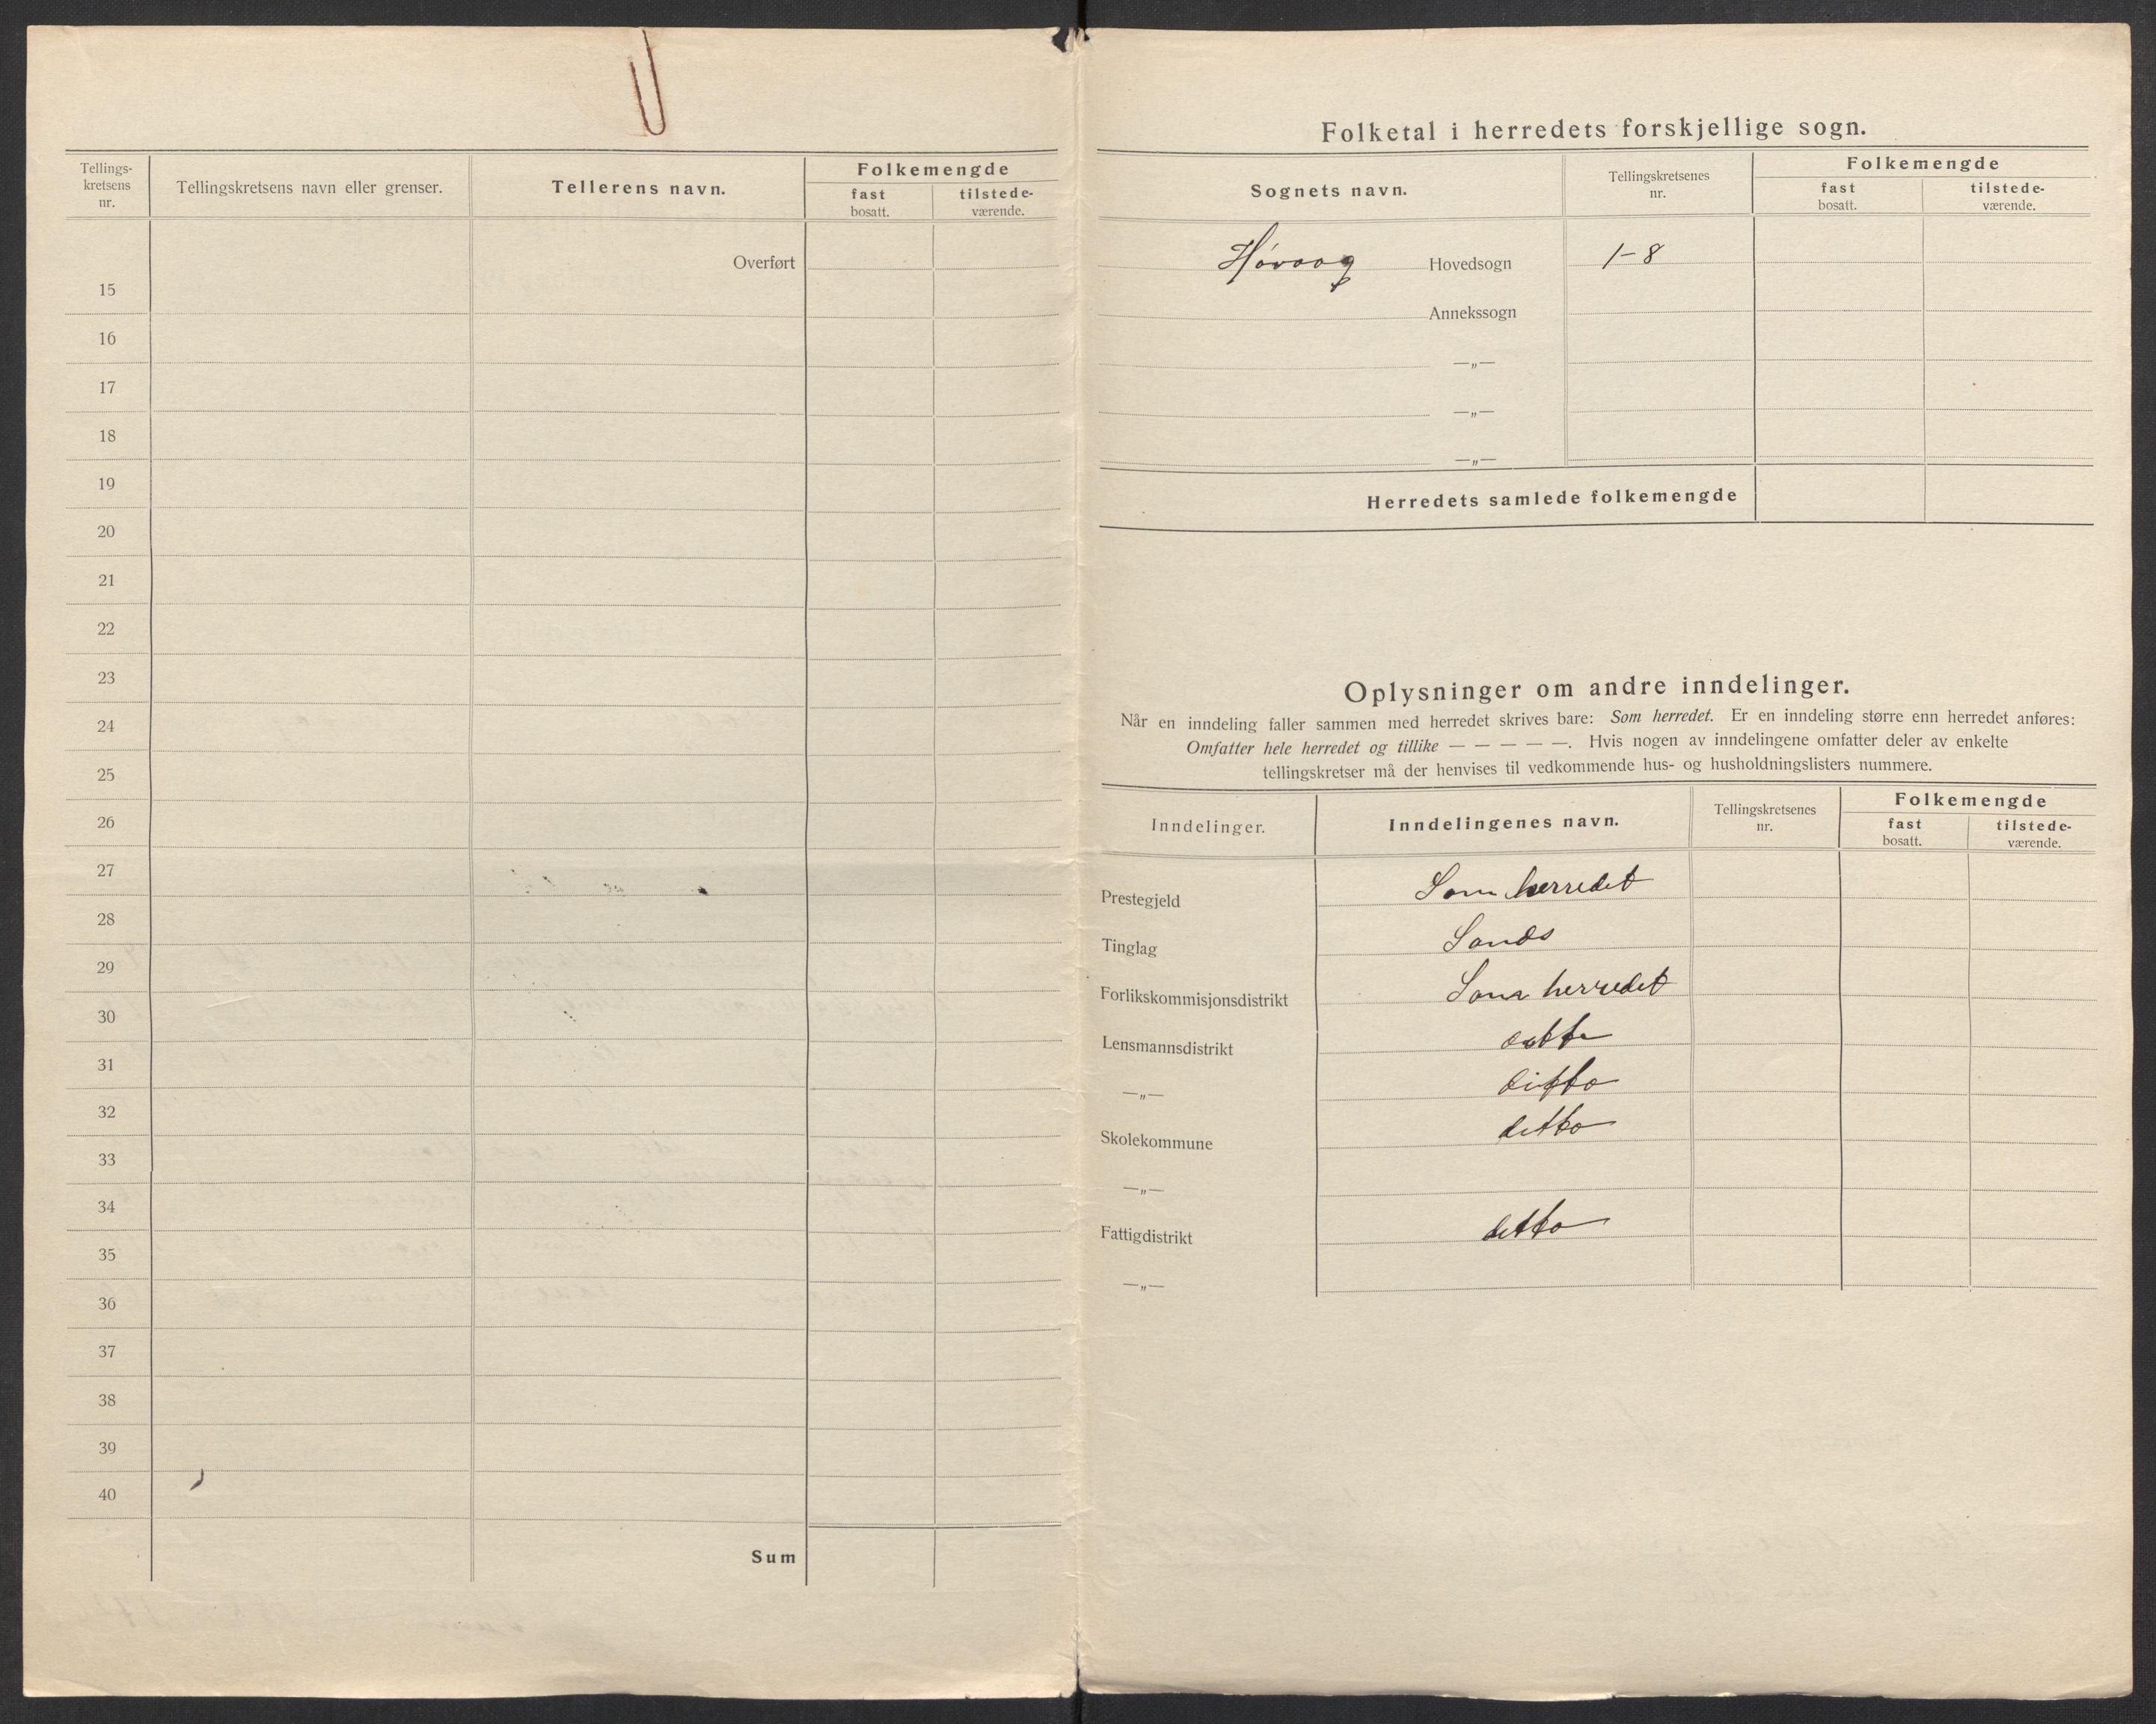 Tellings-
kretsens
nr.
Tellingskretsens navn eller grenser.
Tellerens navn.
Folkemengde
fast
bosatt.
tilstede-
værende.
Overført
15
16
17
18
19
20
21
22
23
24
25
26
27
28
29
30
31
32
33
34
35
36
37
38
39
40
Sum
Folketal i herredets forskjellige sogn.
Sognets navn.
Tellingskretsenes
nr.
Folkemengde
fast
bosatt.
tilstede-
værende.
Høvaag Hovedsogn 1-8
Annekssogn
—„—
—„—
—„—
Herredets samlede folkemengde
Oplysninger om andre inndelinger.
Når en inndeling faller sammen med herredet skrives bare: Som herredet. Er en inndeling større enn herredet anføres:
Omfatter hele herredet og tillike — — — — —. Hvis nogen av inndelingene omfatter deler av enkelte
tellingskretser må der henvises til vedkommende hus- og husholdningslisters nummere.
Inndelinger.
Inndelingenes navn.
Tellingskretsenes
nr.
Folkemengde
fast
bosatt.
tilstede-
værende.
Prestegjeld Som herredet
Tinglag Sands
Forlikskommisjonsdistrikt Som herredet
Lensmannsdistrikt
—„— ditto
Skolekommune detto
—„—
Fattigdistrikt detto
—„—